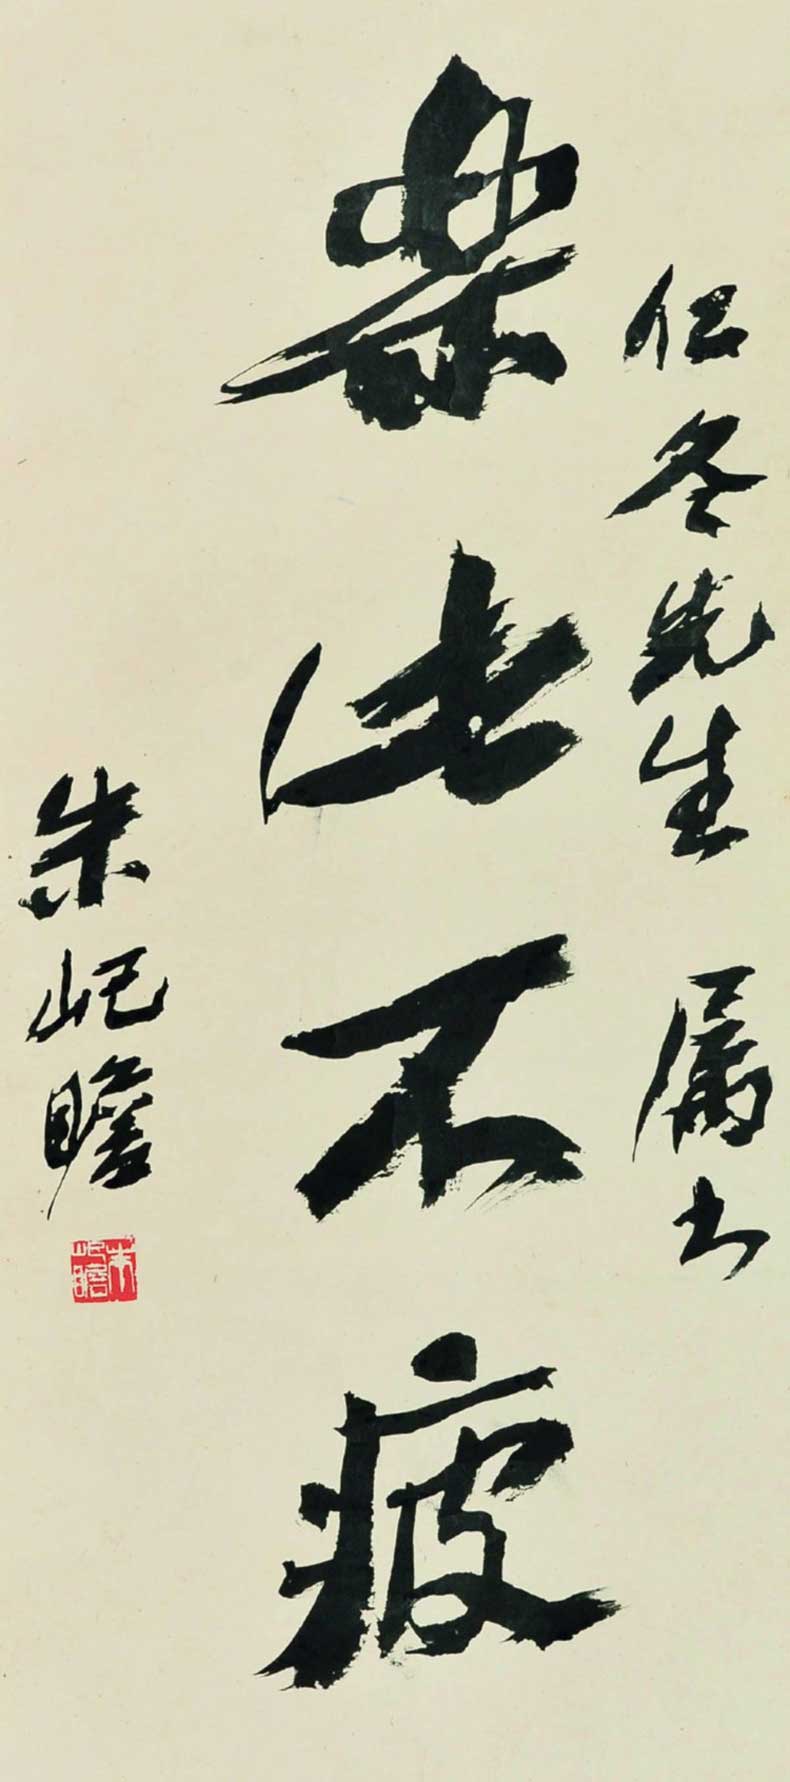 仁冬先生 属书
樂此不疲
朱屺瞻
朱屺瞻